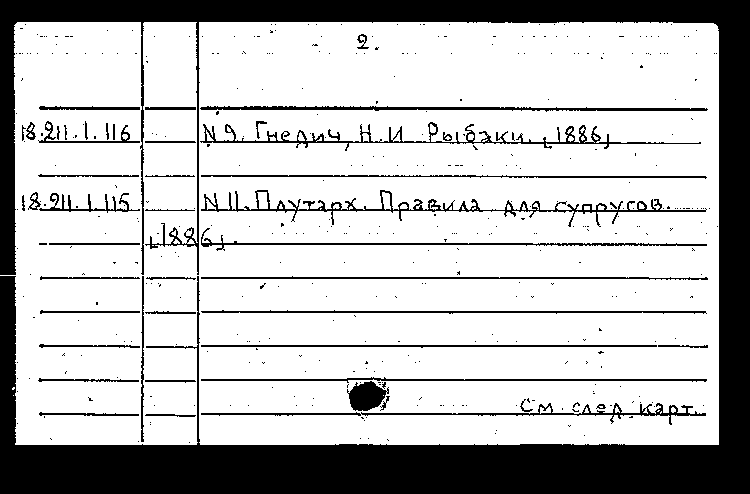 2.
18.211.1.116 N 9. Гнедич, Н. И. Рыбаки. [1886]
18.211.1.115 N 11. Плутарх. Правила для супругов.
[1886].
См. след. карт.